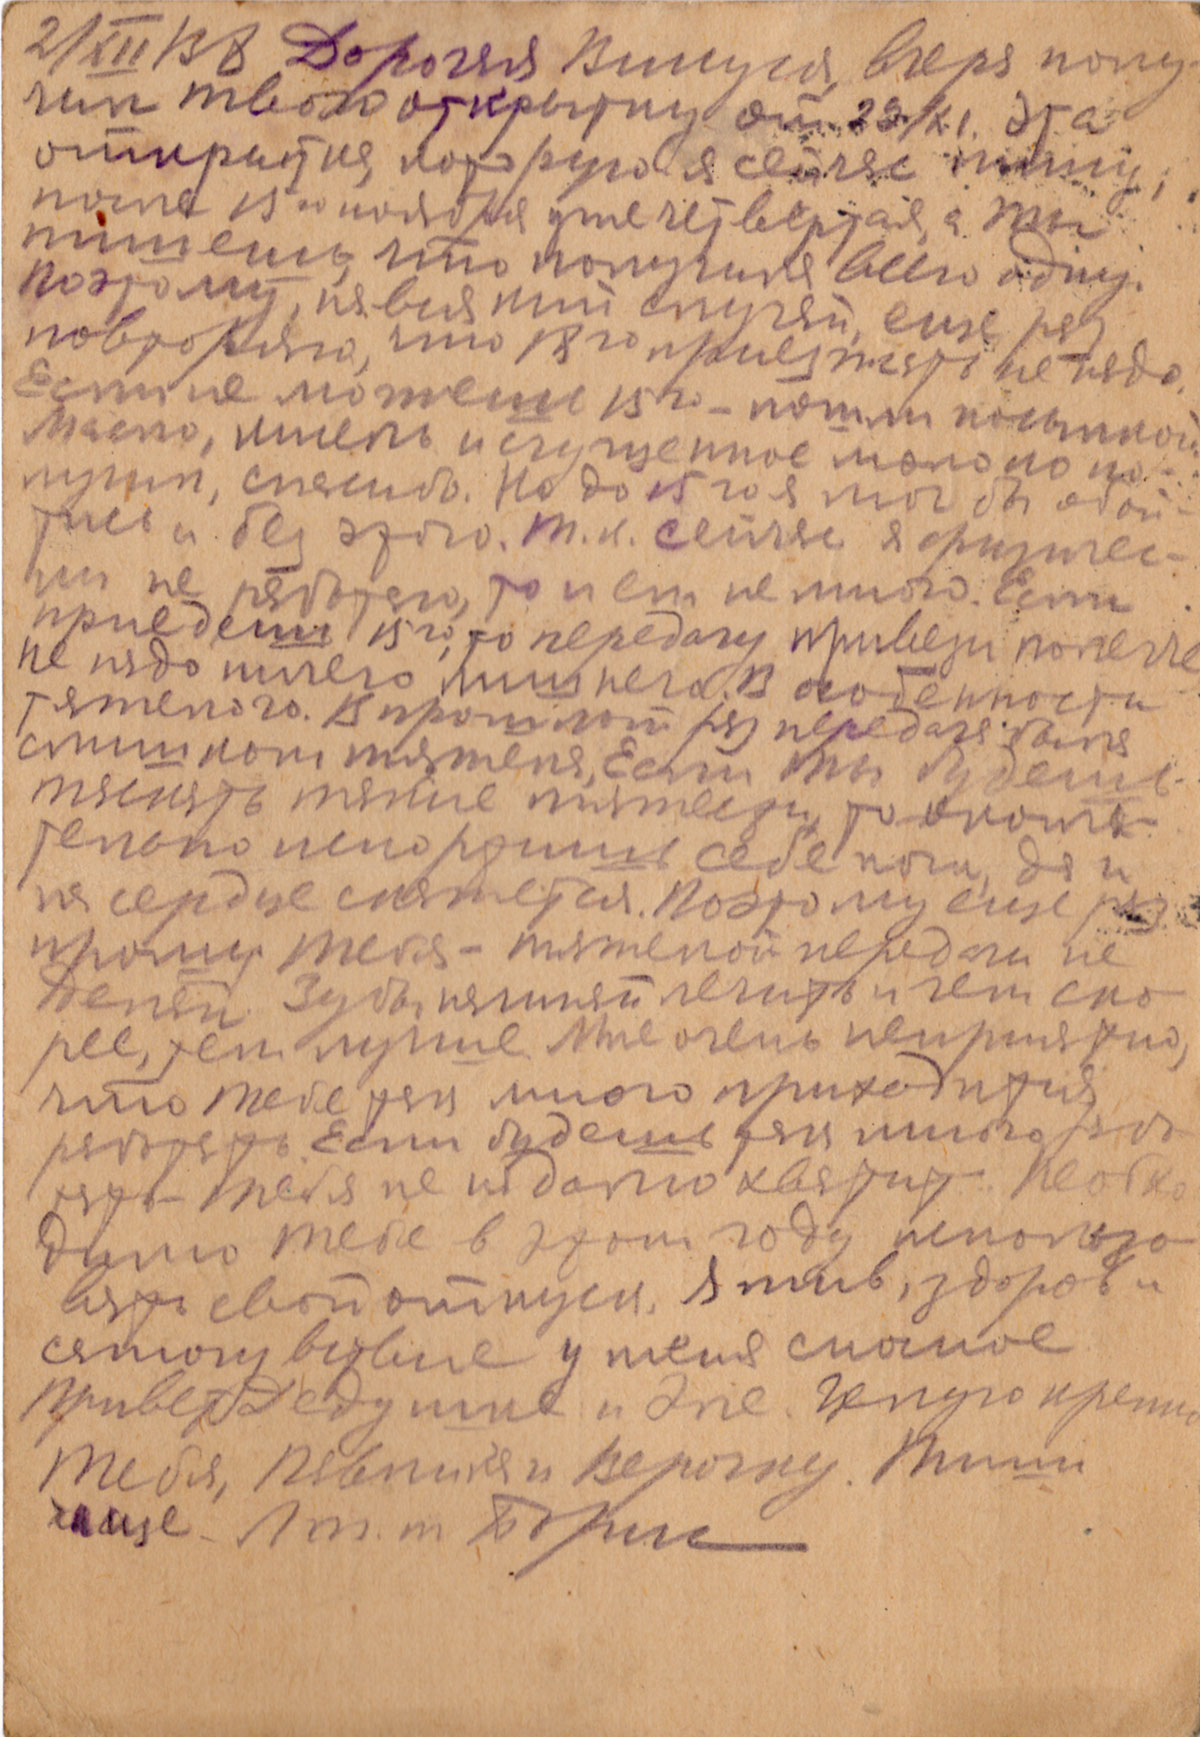 2/XII 138 Дорогая Винуся, вчера полу-
чил твою открытку от 23/XI. Эта
открытка, которую я сейчас пишу,
после 15го ноября уже четвертая, а ты
пишешь, что получила всего одну.
Поэтому, на всякий случай, еще раз
повторяю, что 18го приезжать не надо.
Если не можешь 15го – пошли посылкой
Масло, шпель и сгущенное молоко по-
лучил, спасибо. Но до 15го я мог бы обой-
тись и без этого. Т.к. сейчас я физичес-
ки не работаю, то и ем не много. Если
приедешь 15го, то передачу привези полегче
не надо ничего лишнего. В особенности
тяжелого. В прошлый раз передача была
слишком тяжела, Если ты будешь
таскать такие тяжести, то оконча-
тельно испортишь себе ноги, да и
на сердце скажется. Поэтому еще раз
прошу тебя – тяжелой передачи не
делай. Зубы начинай лечить и чем ско-
рее, тем лучше. Мне очень неприятно,
что тебе там много приходится
работать. Если будешь так много рабо
тать – тебя не надолго хватит. Необхо
димо тебе в этом году использо
вать свой отпуск. Я жив, здоров и
самочувствие у меня сносное
Привет Дедушке и Эле. Целую крепко
тебя, Павлика и Верочку. Пиши
чаще – Борис